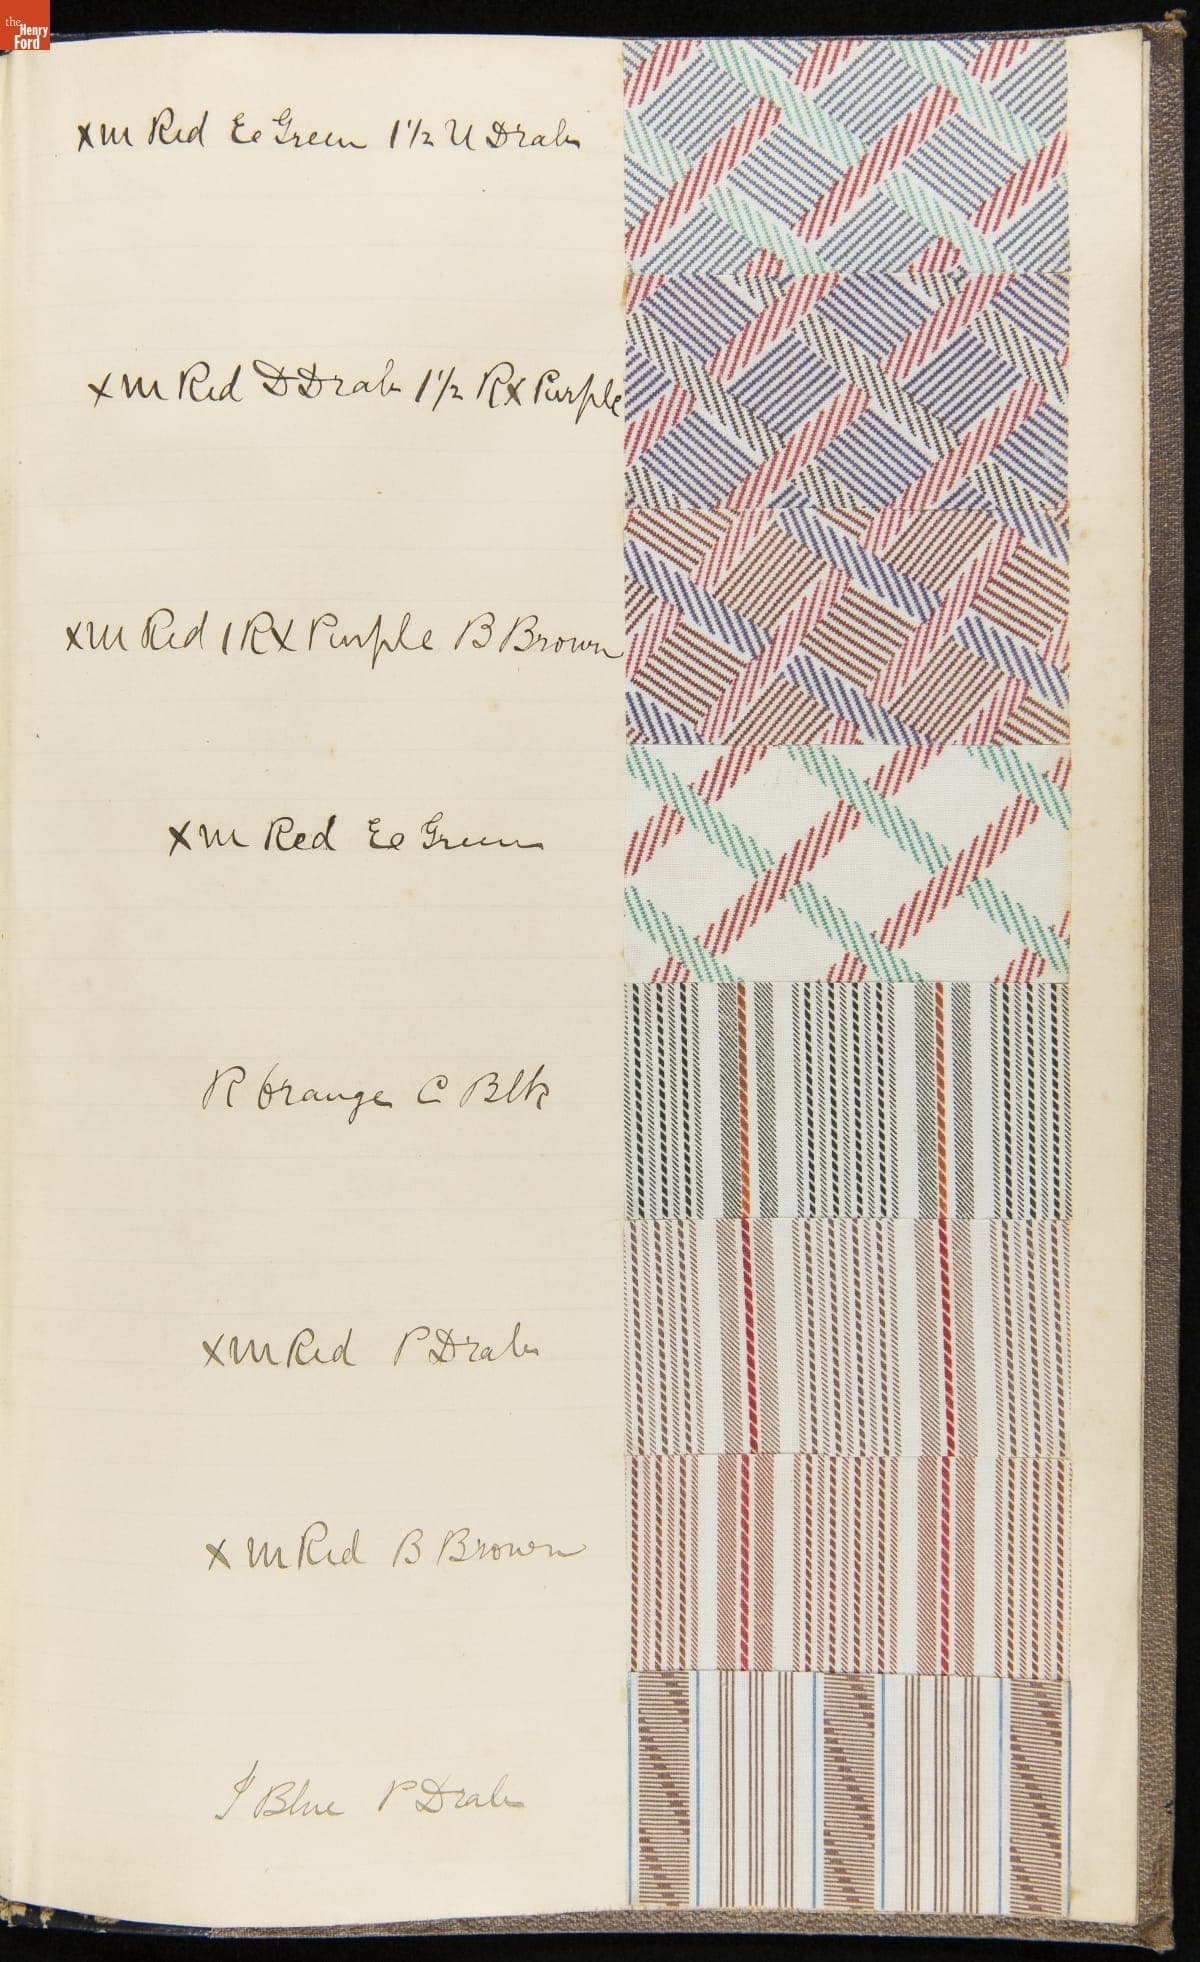 the
Henry
Ford
x M Red Ee Green 1 1/2 U Drab
x M Red D Drab 1 1/2 RX Purple
x M Red 1 RX Purple B Brown
x M Red Ee Green
R Orange C Blk
x M Red P Drab
x M Red B Brown
J Blue P Drab